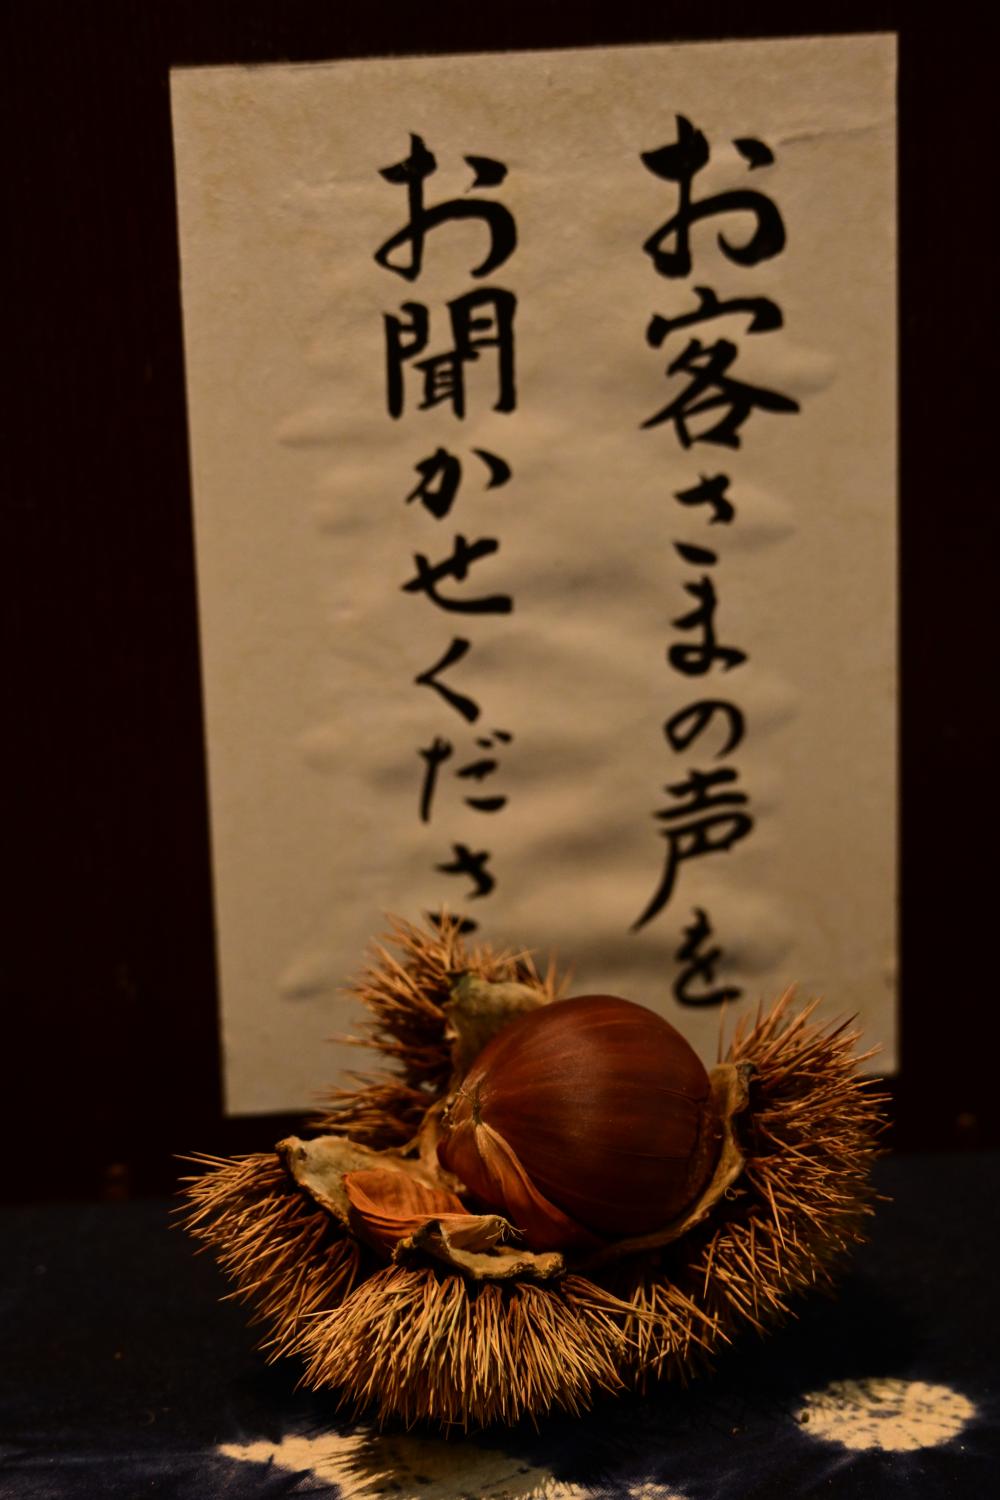 お客さまの声を
お聞かせくださ